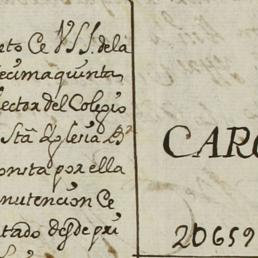 nto Ce VSS. dela
ecimaquinta
ector del Colegio
Stã Iglesia
onsta por ella
nutencion Ce
tado desde pri
CARG
20659